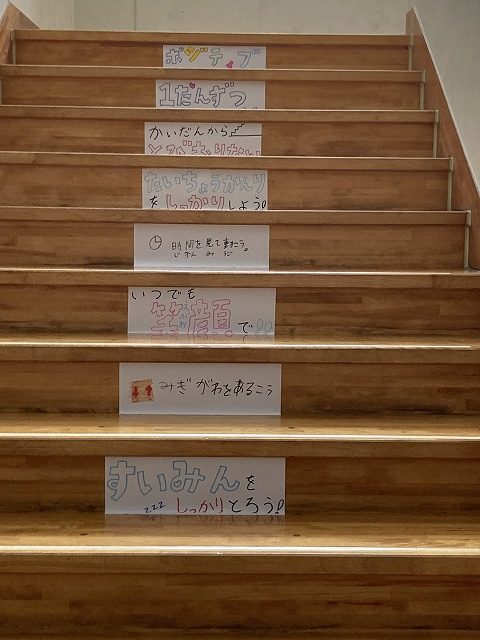 ポジティブ
1だんずつ
かいだんから
とびおりない
たいちょうかんり
をしっかりしよう!
時間を見て動こう。
じかん み うご
いつでも
笑顔で!!
えがお
みぎがわをあるこう
すいみんを
zzz しっかりとろう!